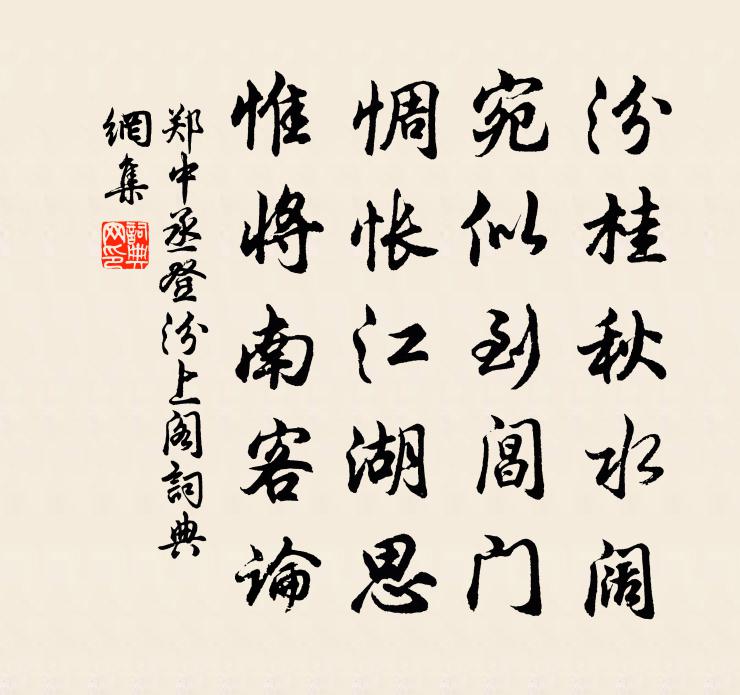 汾桂秋水阔
宛似到阊门
惆怅江湖思
惟将南客论
郑中丞登汾上阁詞典
網集
詞典
网印